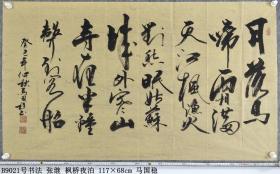 月落烏
啼霜滿
天江楓漁火
對愁眠姑蘇
城外寒山
寺夜半鐘
聲到客船
癸巳年仲秋馬国穩书
B9021号书法 张继 枫桥夜泊 117×68cm 马国稳